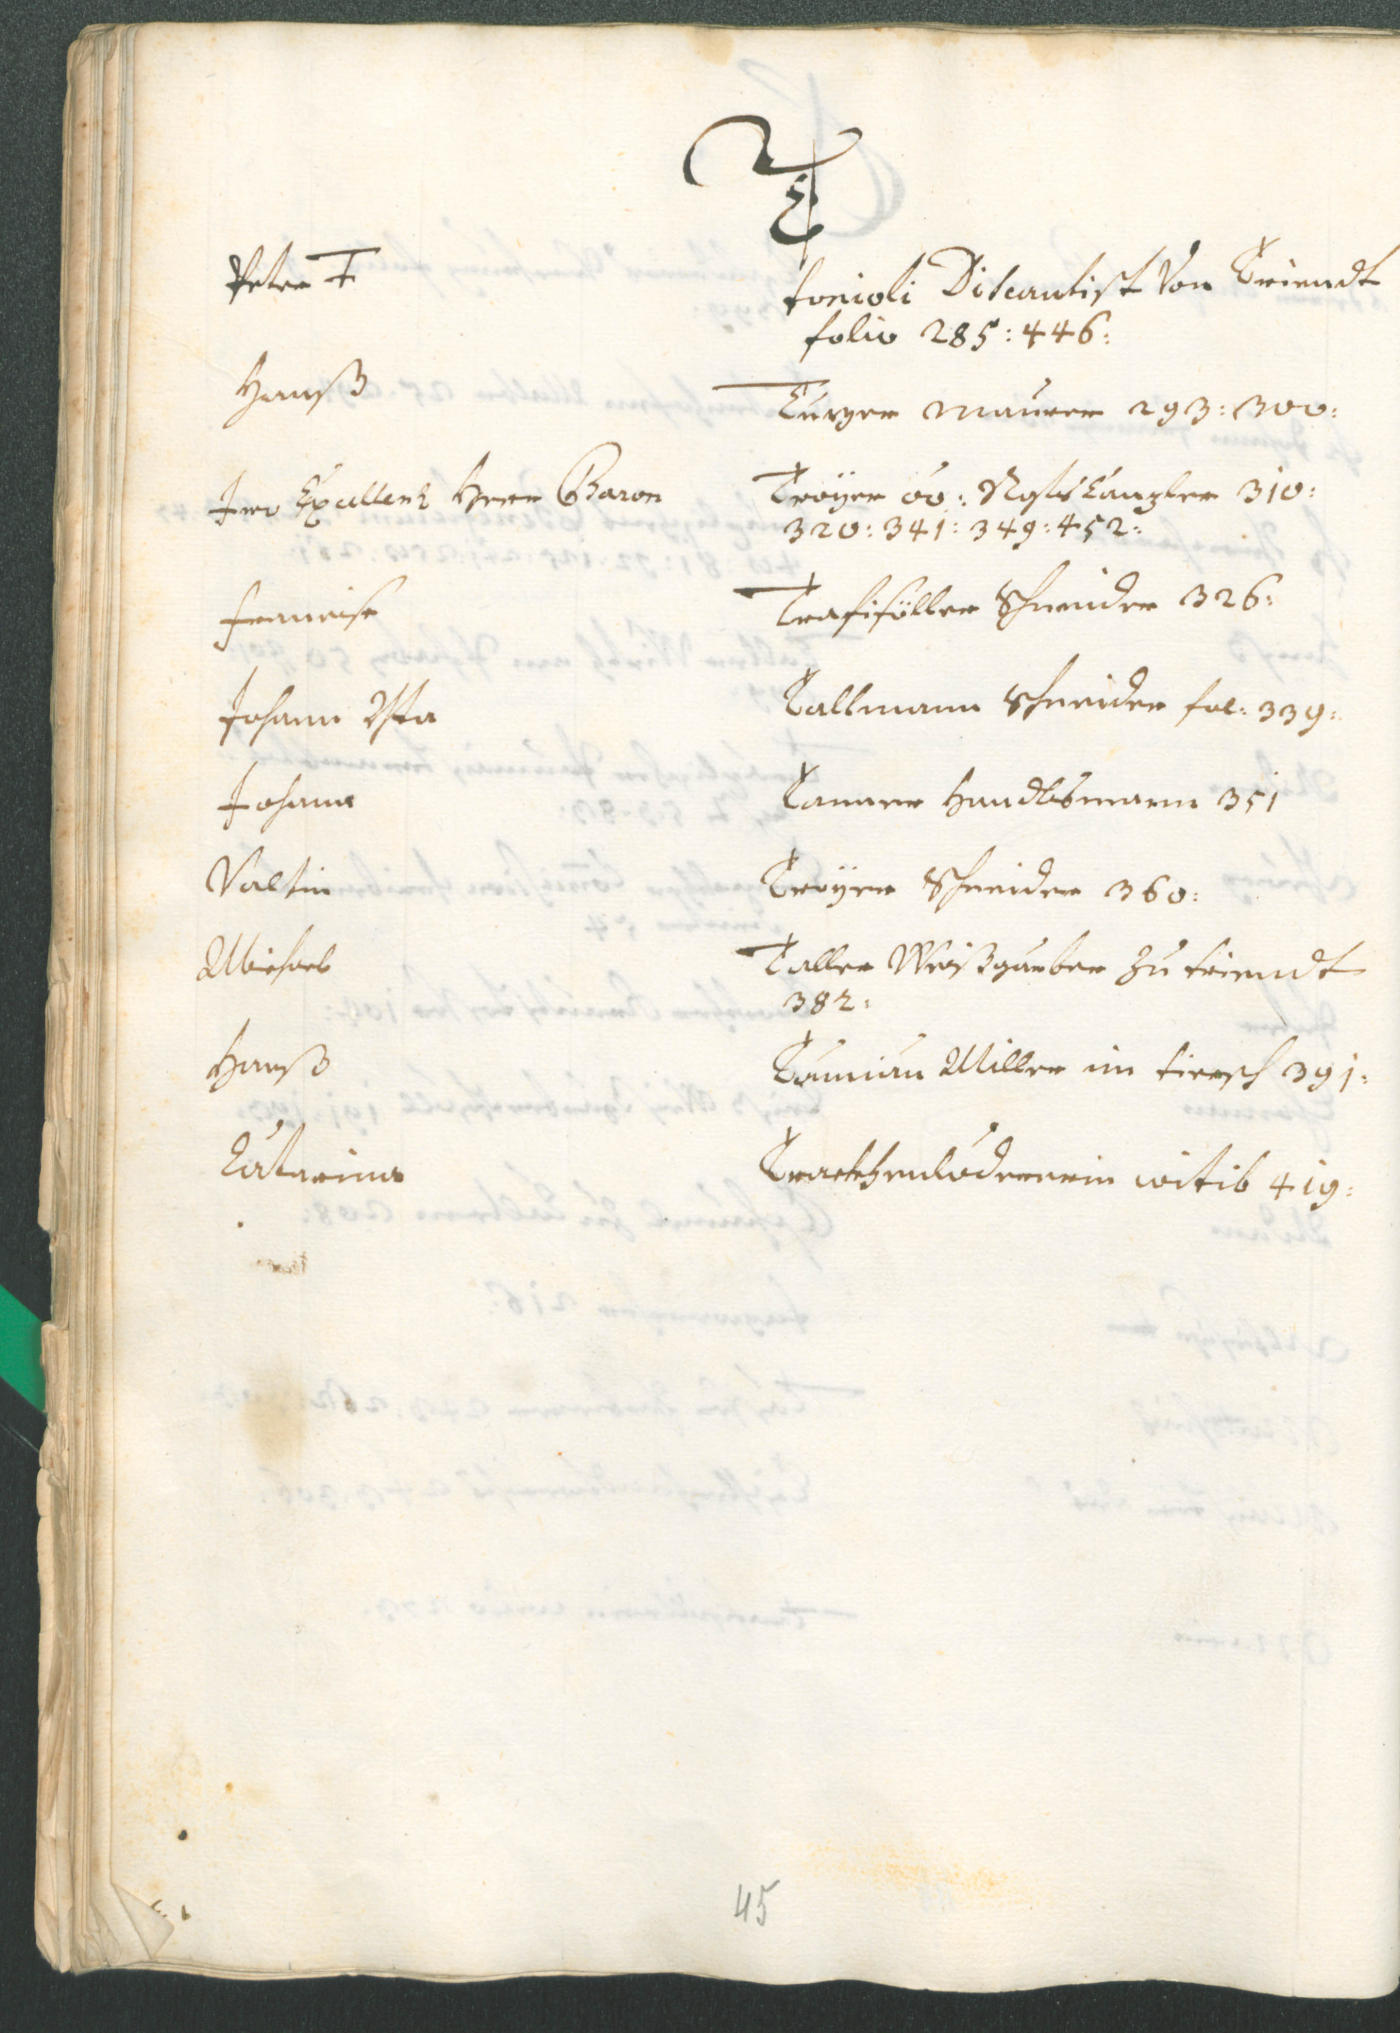 T
Peter T tonioli Discantist Von Triendt
folio 285: 446:
Hanß Turger Maurer 293: 300:
Iro Excellenz Herr Baron Troÿer öö: Canzler 310:
320: 341: 349: 452:
Francisc Schneider 326:
Johann Tallmann Schneider fol: 339:
Johann Tanner Handlsmann 351
Valtin Troÿer Schneider 360:
Michael Taller Weißgärber zu triendt
382:
Hanß Miller im tiersch 391:
Catarina witib 419:
45